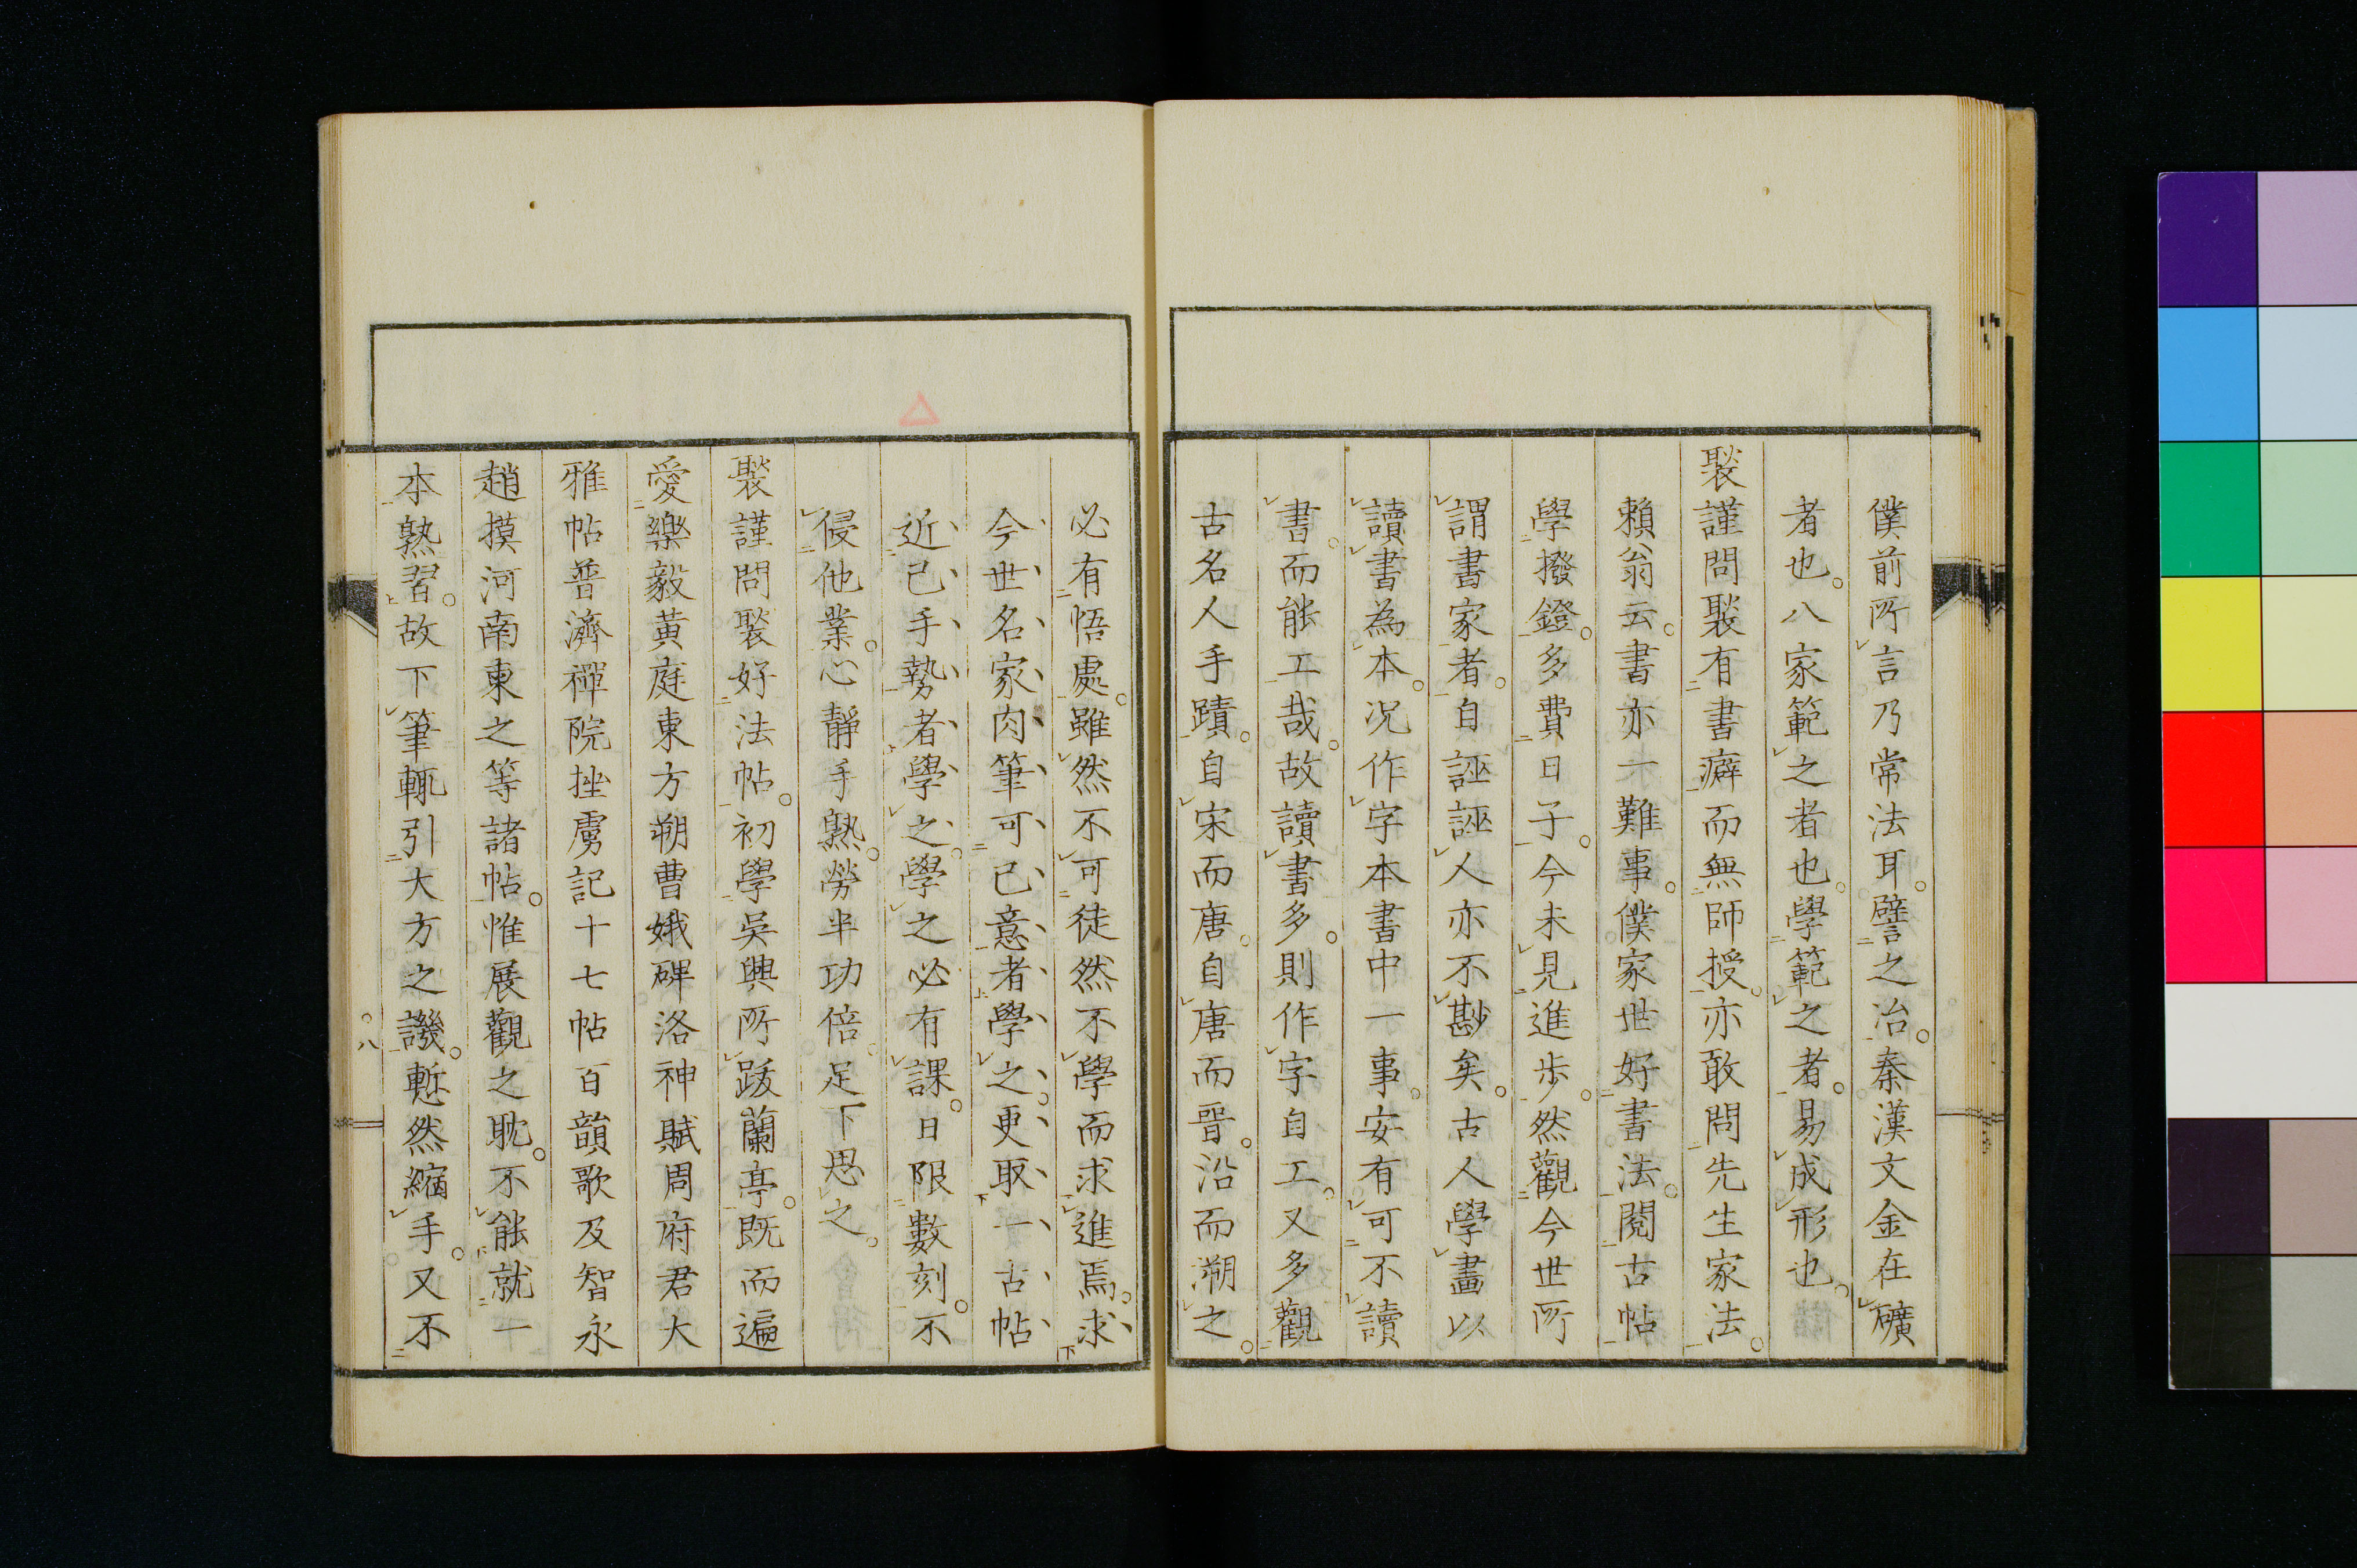 僕前所言乃常法耳。譬之冶。秦漢文金在礦
者也。八家範之者也。學範之者。易成形也。
褧謹問褧有書癖而無師授。亦敢問先生家法。
賴翁云。書亦一難事。僕家世好書法。閱古帖
學撥鐙。多費日子。今未見進步。然觀今世所
謂書家者。自誣誣人亦不尠矣。古人學畫以
讀書為本。况作字本書中一事。安有可不讀
書。而能工哉。故讀書多。則作字自工。又多觀
古名人手蹟。自宋而唐。自唐而晉。沿而溯之。
必有悟處。雖然不可徒然不學而求進焉。求
今世名家肉筆可己意者學之。更取一古帖
近己手勢者學之。學之必有課。日限數刻。不
侵他業。心靜手熟。勞半功倍。足下思之。
褧謹問褧好法帖。初學吳興所跋蘭亭。既而遍
愛樂毅黃庭東方朔曹娥碑洛神賦周府君大
雅帖普濟禪院挫虜記十七帖百韻歌及智永
趙摸河南東之等諸帖。惟展觀之耽。不能就一
本熟習。故下筆輒引大方之譏。慙然縮手。又不
八